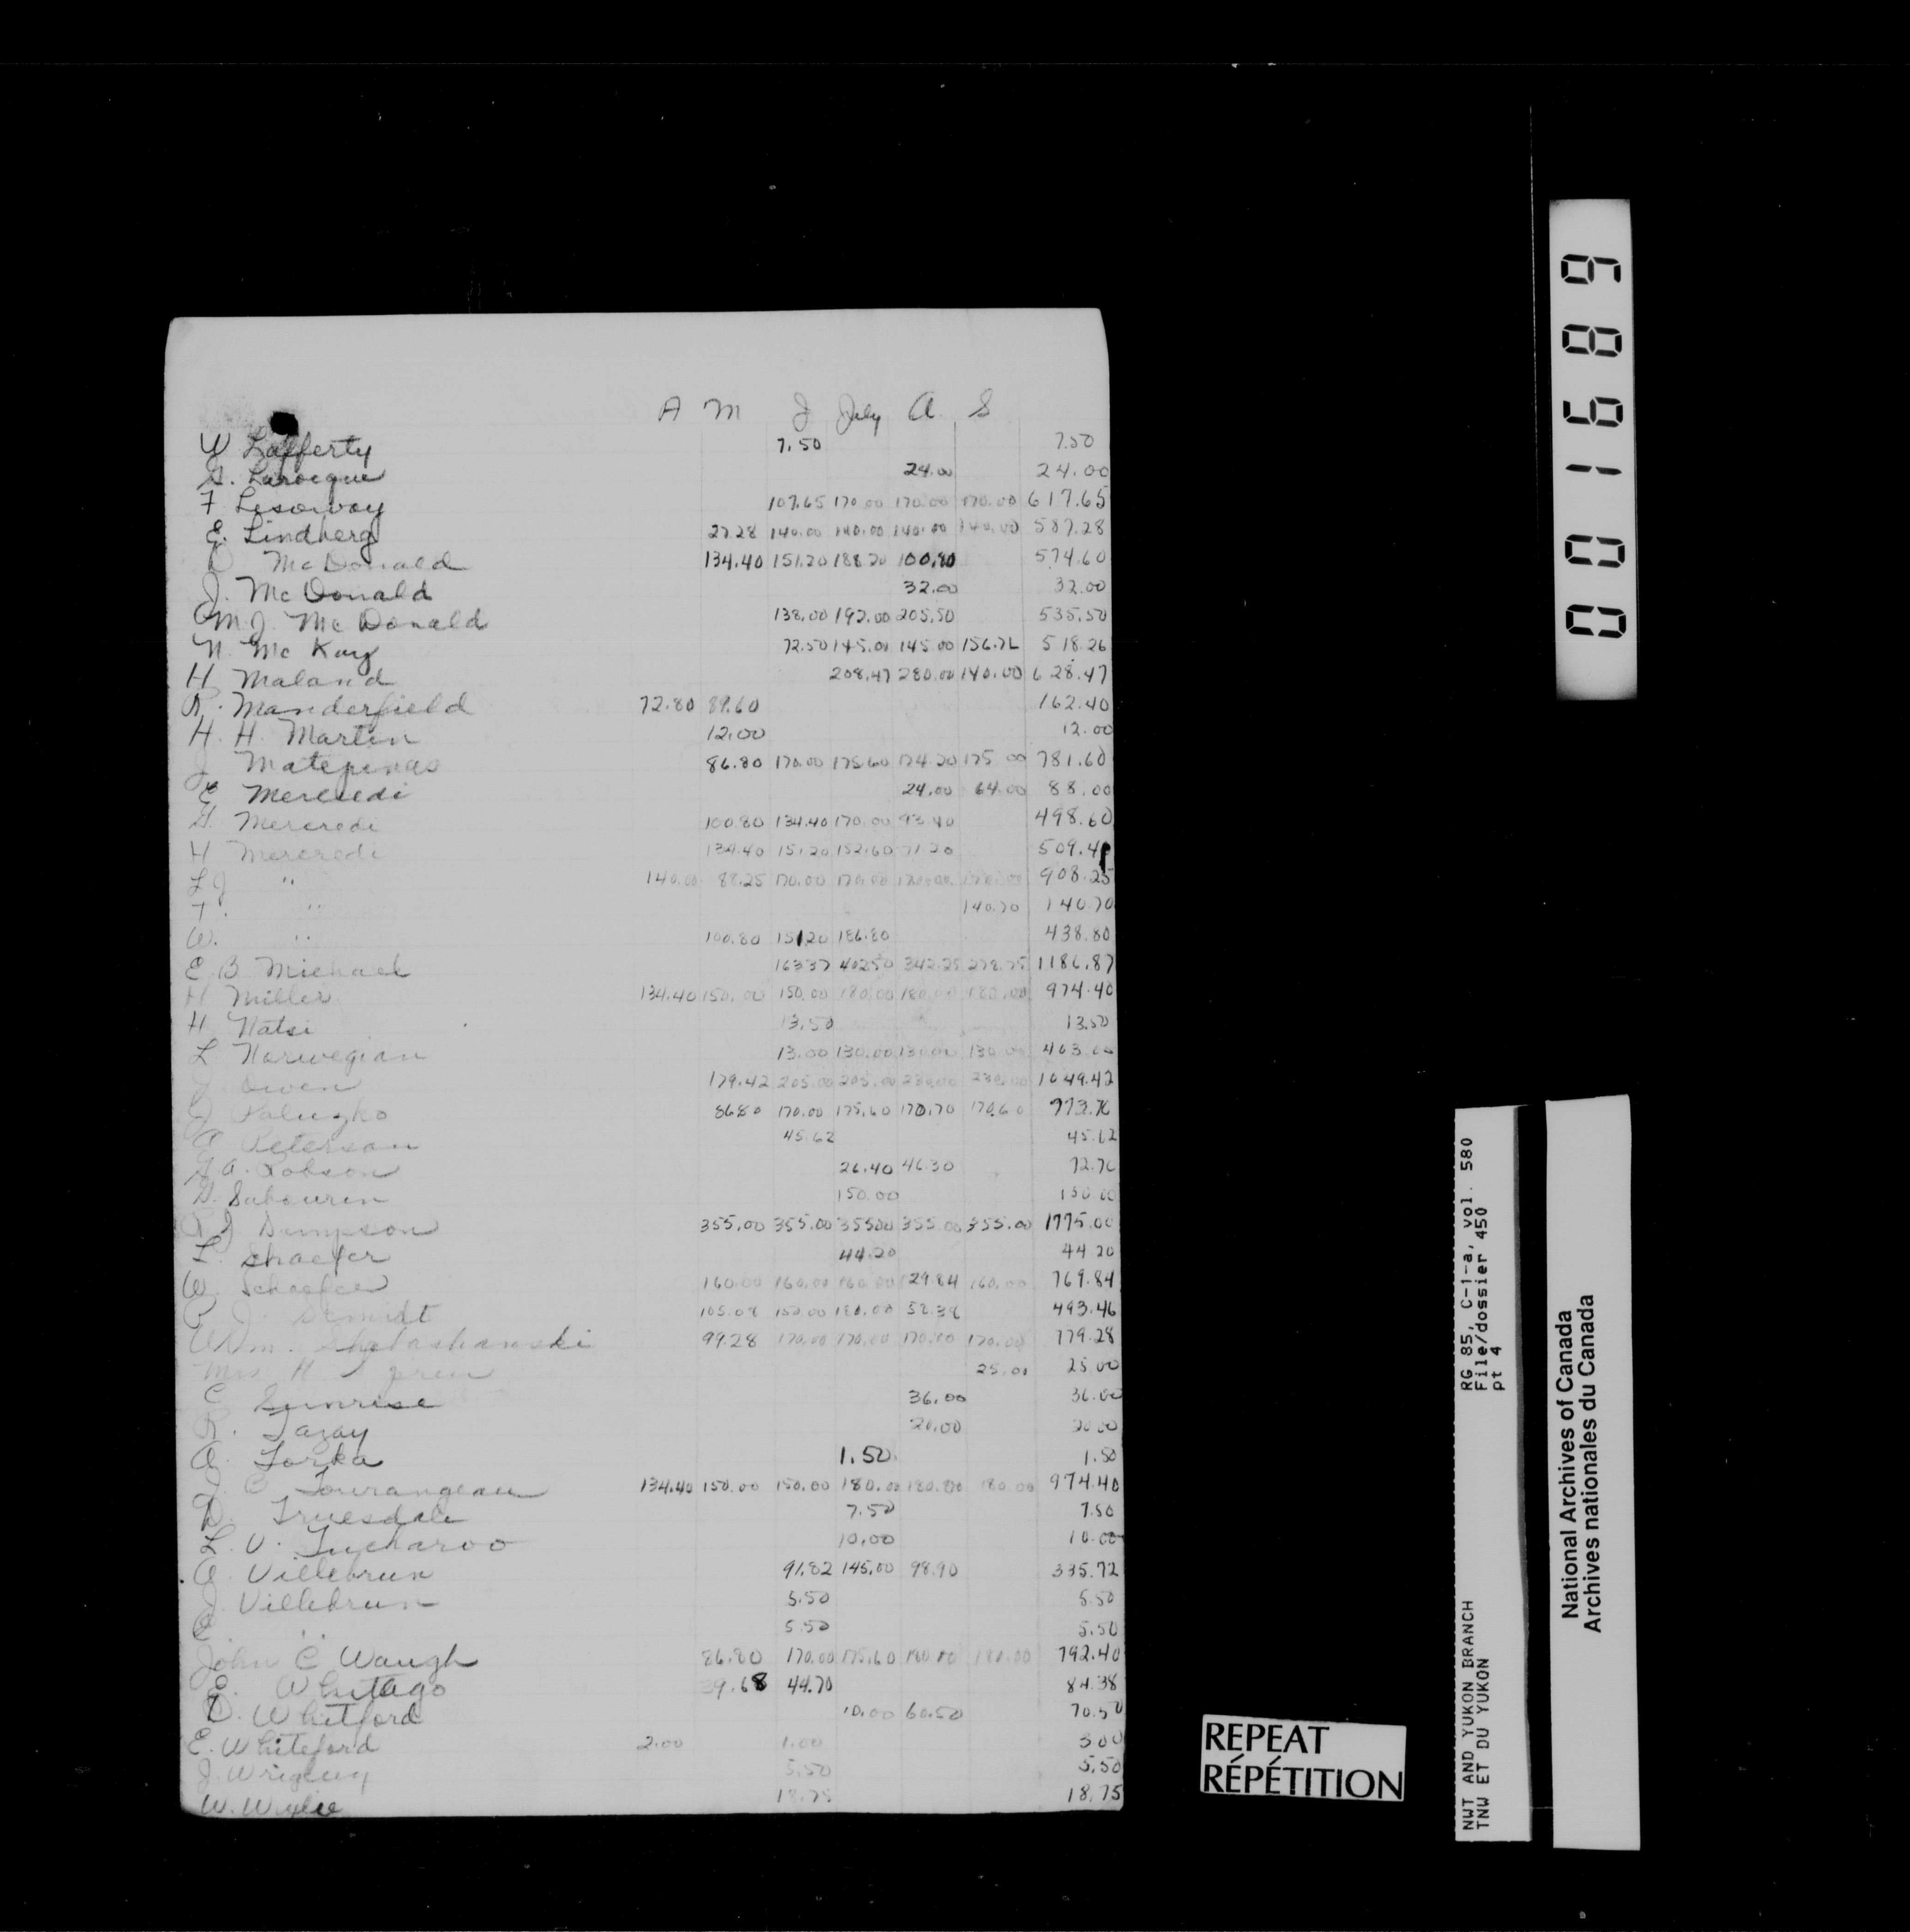 A M J July A S
W Lafferty 7.50 7.50
G. Larocque 24.00 24.00
F Lesoway 107.65 170.00 170.00 170.00 617.65
E. Lindberg 27.28 140.00 140.00 140.00 140.00 587.28
D McDonald 134.40 151.20 188.20 100.80 574.60
J. McDonald 32.00 32.00
M.J. McDonald 138.00 192.00 205.50 535.50
N. McKay 72.50 145.00 145.00 156.76 518.26
H Maland 208.47 280.00 140.00 628.47
R. Manderfield 72.80 89.60 162.40
H. H. Martin 12.00 12.00
J Matepinas 86.80 170.00 175.60 174.20 175 00 781.60
E Mercredi 24.00 64.00 88.00
G. Mercredi 100.80 134.40 170.00 93.40 498.60
H Mercredi 134.40 151.20 152.60 71.20 509.40
L J " 140.00 88.25 170.00 170.00 170.00 170.00 908.25
T. " 140.70 140.70
W. " 100.80 151.20 186.80 438.80
E B Michael 163.37 402.50 342.25 278.75 1186.87
H Miller 134.40 150.00 150.00 180.00 180.00 180.00 974.40
H Natsi 13.50 13.50
L Norwegian 13.00 130.00 130.00 130.00 403.00
J. Owen 179.42 205.00 205.00 230.00 230.00 1049.42
J Paluzko 86.80 170.00 175.60 170.70 170.60 773.70
A Peterson 45.62 45.62
G A. Robson 26.40 46.30 72.70
G. Sabourin 150.00 150.00
R J Simpson 355.00 355.00 355.00 355.00 355.00 1775.00
L. Shaefer 44.20 44.20
W. Schaefer 160.00 160.00 160.00 129.84 160.00 769.84
P J. Scmidt 105.08 150.00 180.00 58.38 493.46
Wm. 99.28 170.00 170.00 170.00 170.00 779.28
Mrs H 25.00 25.00
C Sunrise 36.00 36.00
R. Tazay 20.00 20.00
A. Torka 1.50 1.50
J. C Tourangeau 134.40 150.00 150.00 180.00 180.00 180.00 974.40
D. Truesdale 7.50 7.50
L. V. Tucharoo 10.00 10.00
A Villebrun 91.82 145.00 98.90 335.72
J. Villebrun 5.50 5.50
" 5.50 5.50
John C Waugh 86.80 170.00 175.60 180.00 180.00 792.40
E. Whitago 39.68 44.70 84.38
D. Whitford 10.00 60.50 70.50
E. Whiteford 2.00 1.00 3.00
J. Wrigley 5.50 5.50
W. Wylie 18.75 18.75
001689
RG 85, C-1-a, vol. 580
File/dossier 450
pt 4
NWT AND YUKON BRANCH
TNW ET DU YUKON
National Archives of Canada
Archives nationales du Canada
REPEAT
RÉPÉTITION